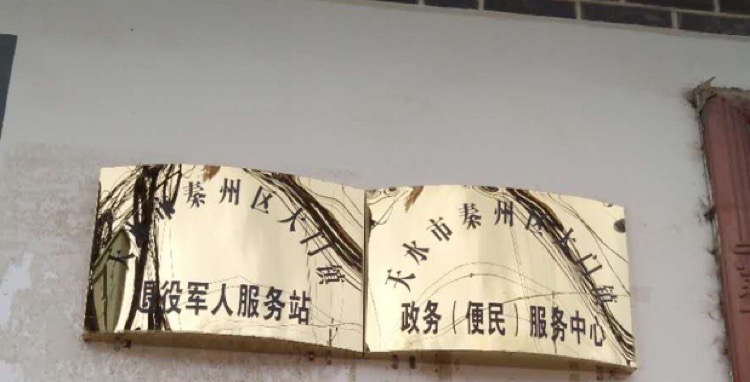 天水市秦州区大门镇
退役军人服务站
天水市秦州区大门镇
政务（便民）服务中心